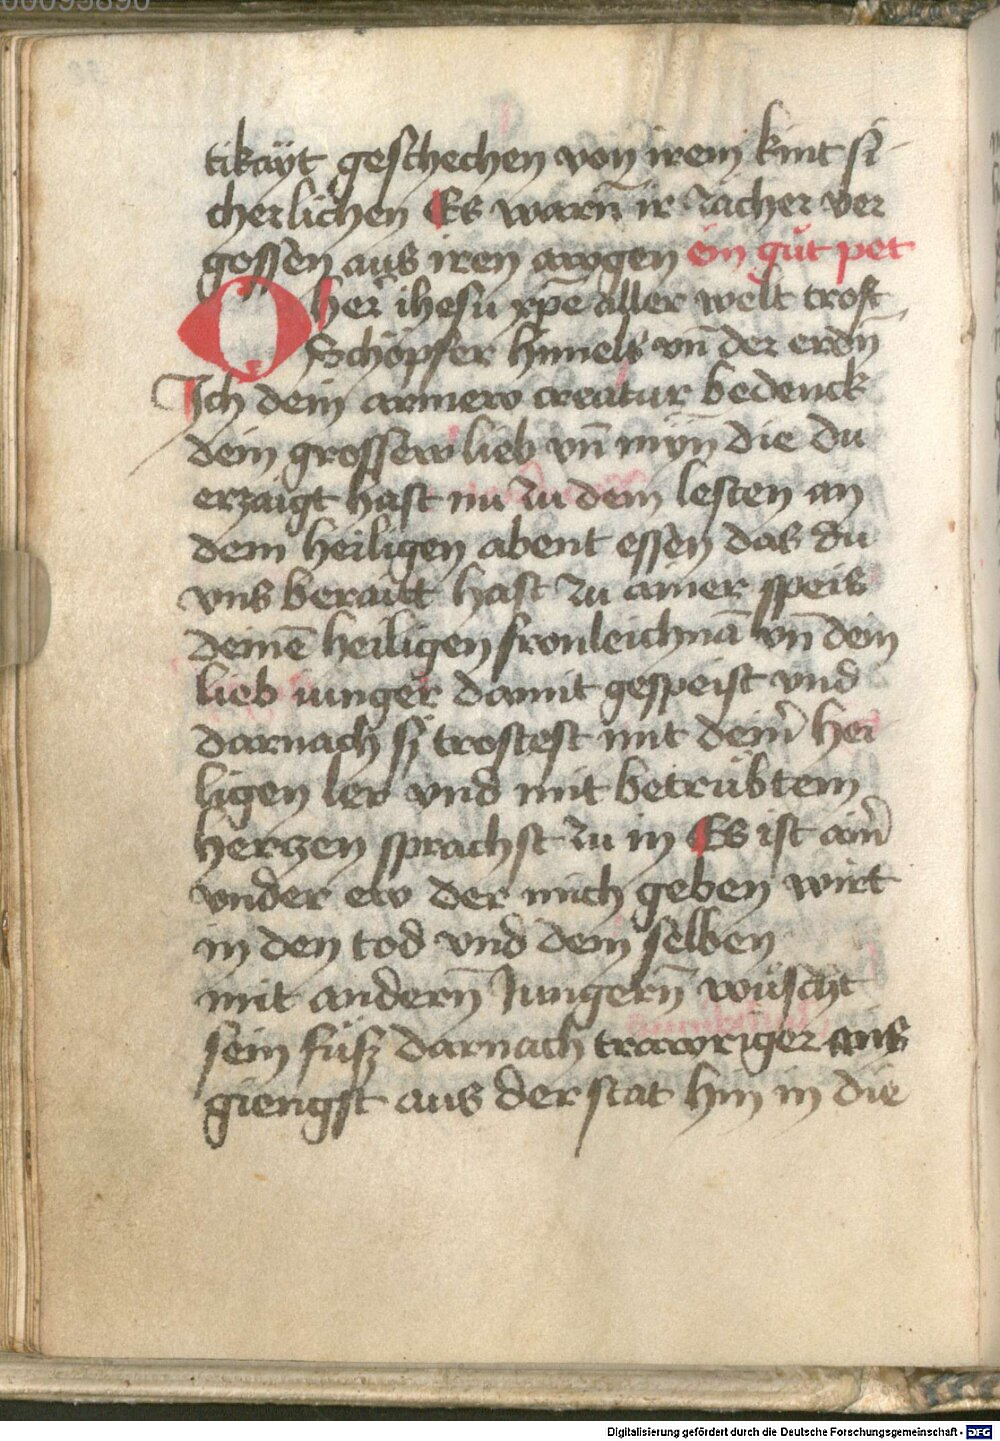 00095890
tikayt geschechen von irem kint si
cherlichen Es warn̄ ir zächer ver
gossen aus iren awgen ein gůt pet
O her ihesu xp̄e aller welt trost
Schöpfer himels vn̄ der erdn̄
Ich dein armew creatur bedenck
dein grossew lieb vn̄ myn̄ die du
erzaigt hast nu zu dem lesten an
dem heiligen abent essen das du
vns beraitt hast zu ainer speis
deinē heiligen fronleichnā vn̄ dein
lieb iunger damit gespeist vnd
darnach sy trostest mit dein̄ hei
ligen ler vnd mit betrübtem
herczen sprachst zu in Es ist ain̄
vnder ew der mich geben wirt
in den tod vnd dem selben
mit andern̄ Jungern̄ wüscht
sein füsz darnach trawriger aus
giengst aus der stat hin in die
Digitalisierung gefördert durch die Deutsche Forschungsgemeinschaft - DFG